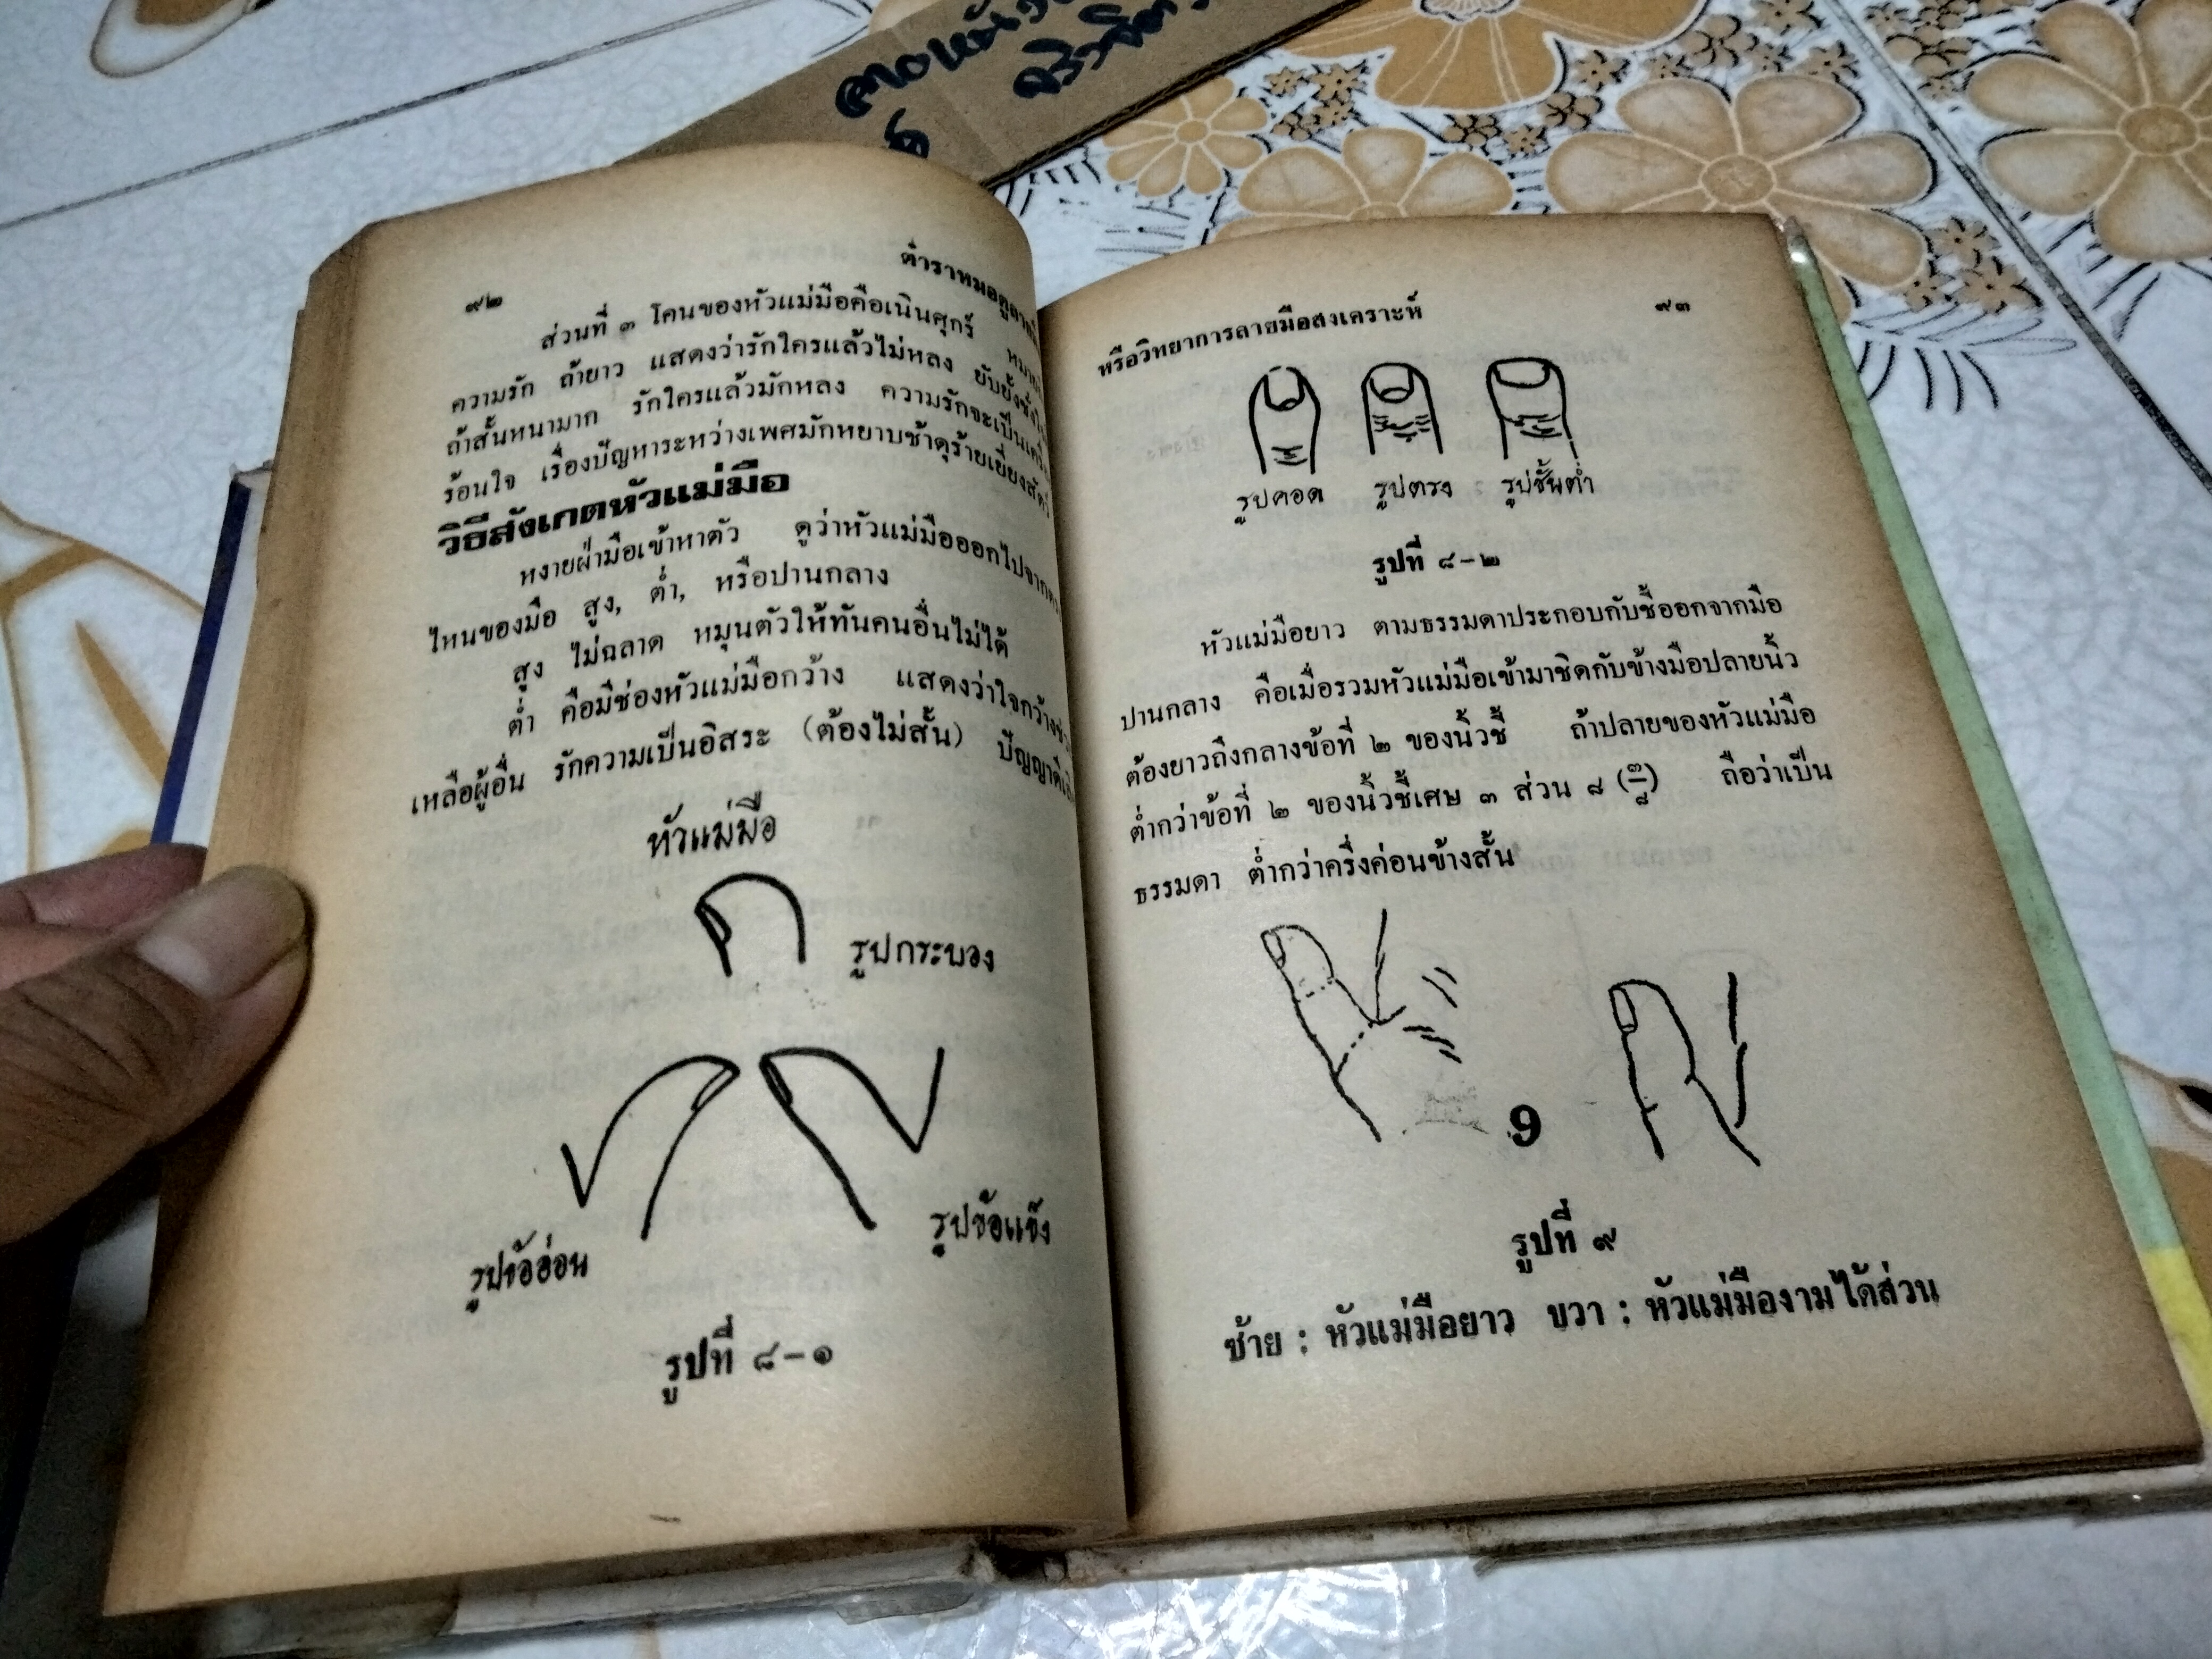 ๙๒
ตำราหมอดูลายมือ
ส่วนที่ ๓ โคนของหัวแม่มือคือเนินศุกร์
ความรัก ถ้ายาว แสดงว่ารักใครแล้วไม่หลง ยับยั้งชั่งใจ
ถ้าสั้นหนามาก รักใครแล้วมักหลง ความรักจะเป็น
ร้อนใจ เรื่องปัญหาระหว่างเพศมักหยาบช้าดุร้ายเยี่ยงสัตว์
วิธีสังเกตหัวแม่มือ
หงายฝ่ามือเข้าหาตัว ดูว่าหัวแม่มือออกไปจาก
ไหนของมือ สูง, ต่ำ, หรือปานกลาง
สูง ไม่ฉลาด หมุนตัวให้ทันคนอื่นไม่ได้
ต่ำ คือมีช่องหัวแม่มือกว้าง แสดงว่าใจกว้าง
เหลือผู้อื่น รักความเป็นอิสระ (ต้องไม่สั้น)
หัวแม่มือ
รูปกระบอง
รูปข้ออ่อน
รูปข้อแข็ง
รูปที่ ๘-๑
หรือวิทยาการลายมือสงเคราะห์ ๙๓
รูปคอด รูปตรง รูปชั้นต่ำ
รูปที่ ๘-๒
หัวแม่มือยาว ตามธรรมดาประกอบกับชี้ออกจากมือ
ปานกลาง คือเมื่อรวมหัวแม่มือเข้ามาชิดกับข้างมือปลายนิ้ว
ต้องยาวถึงกลางข้อที่ ๒ ของนิ้วชี้ ถ้าปลายของหัวแม่มือ
ต่ำกว่าข้อที่ ๒ ของนิ้วชี้เศษ ๓ ส่วน ๘ (๓/๘) ถือว่าเป็น
ธรรมดา ต่ำกว่าครึ่งค่อนข้างสั้น
9
รูปที่ ๙
ซ้าย : หัวแม่มือยาว ขวา : หัวแม่มืองามได้ส่วน